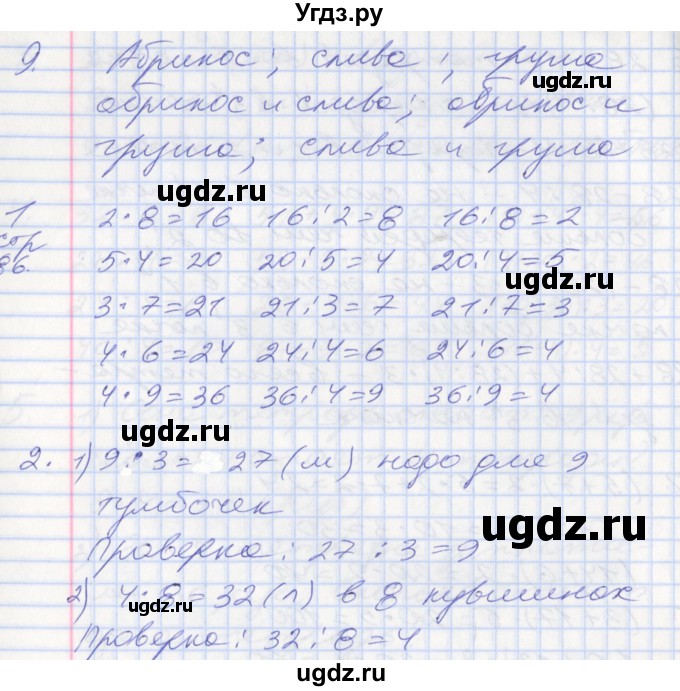 Угдз.ру
9. Абрикос; слива; груша
абрикос и слива; абрикос и
груша; слива и груша
ugdz.ru
ugdz.ru
1 2·8=16 16:2=8 16:8=2
стр 5·4=20 20:5=4 20:4=5
86. 3·7=21 21:3=7 21:7=3
4·6=24 24:4=6 24:6=4
4·9=36 36:4=9 36:9=4
2. 1) 9·3=27(м) надо для 9
ugdz.ru
тумбочек
Проверка: 27:3=9
ugdz.ru
2) 4·8=32(л) в 8 кувшинах
Проверка: 32:8=4
ugdz.ru